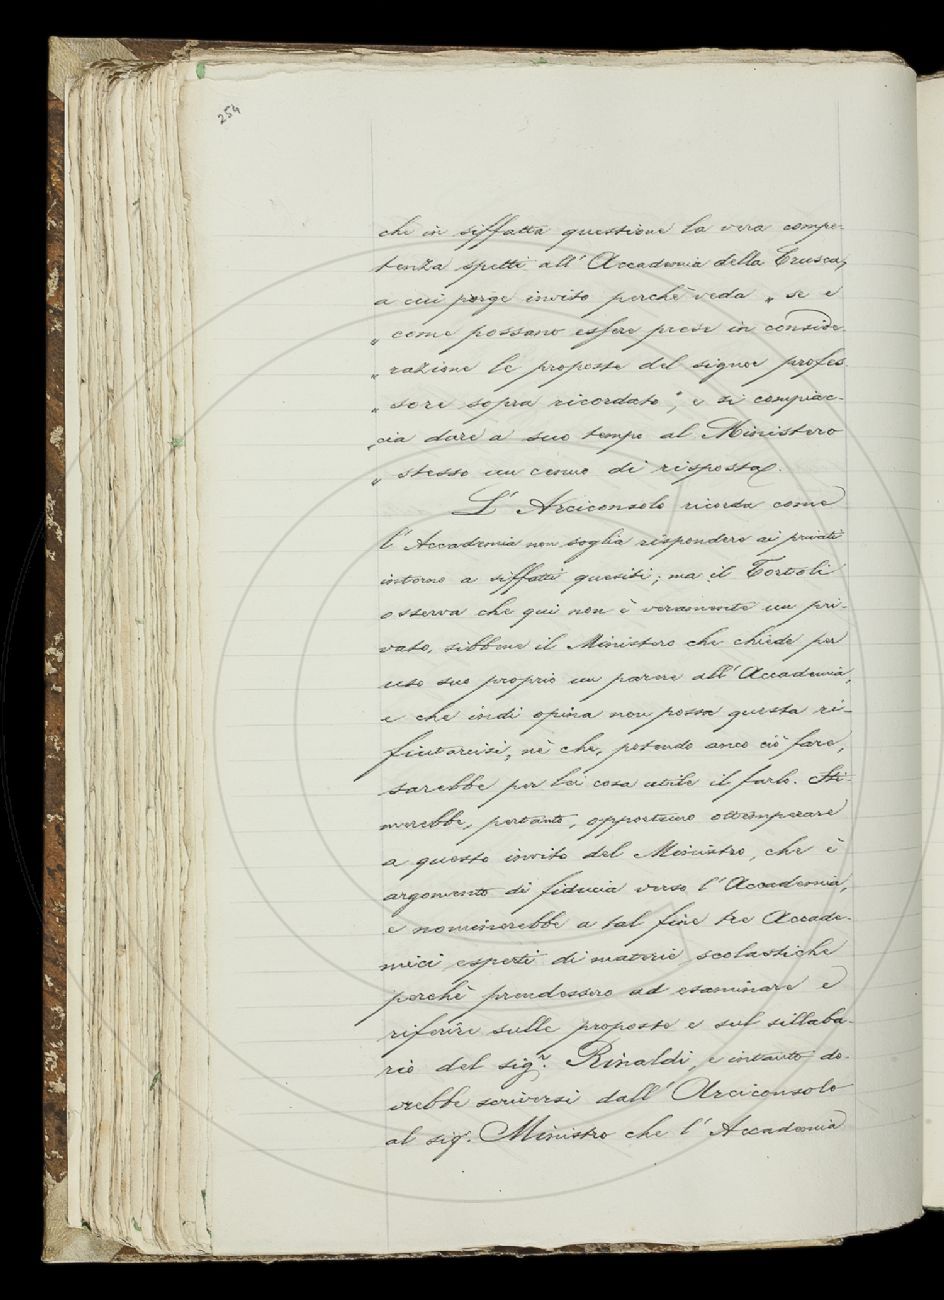 254
che in siffatta questione la vera compe-
tenza spetti all' Accademia della Crusca,
a cui porge invito perchè veda „ se e
„ come possano essere prese in conside-
„ razione le proposte del signor profes-
„ sore sopra ricordato", e si compiac-
„ cia dare a suo tempo al Ministero
„ stesso un cenno di risposta.
L' Arciconsolo ricorda come
l' Accademia non soglia rispondere ai privati
intorno a siffatti quesiti; ma il Tortoli
osserva che qui non è veramente un pri-
vato, sibbene il Ministero che chiede per
uso suo proprio un parere all' Accademia,
e che indi opina non possa questa ri-
fiutarvisi, nè che, potendo anco ciò fare,
sarebbe per lei cosa utile il farlo. Sti-
merebbe, pertanto, opportuno ottemperare
a questo invito del Ministro, che è
argomento di fiducia verso l' Accademia,
e nominerebbe a tal fine tre Accade-
mici esperti di materie scolastiche
perchè prendessero ad esaminare e
riferire sulle proposte e sul sillaba-
rio del sigr. Rinaldi, e intanto do-
vrebbe scriversi dall' Arciconsolo
al sigr. Ministro che l' Accademia